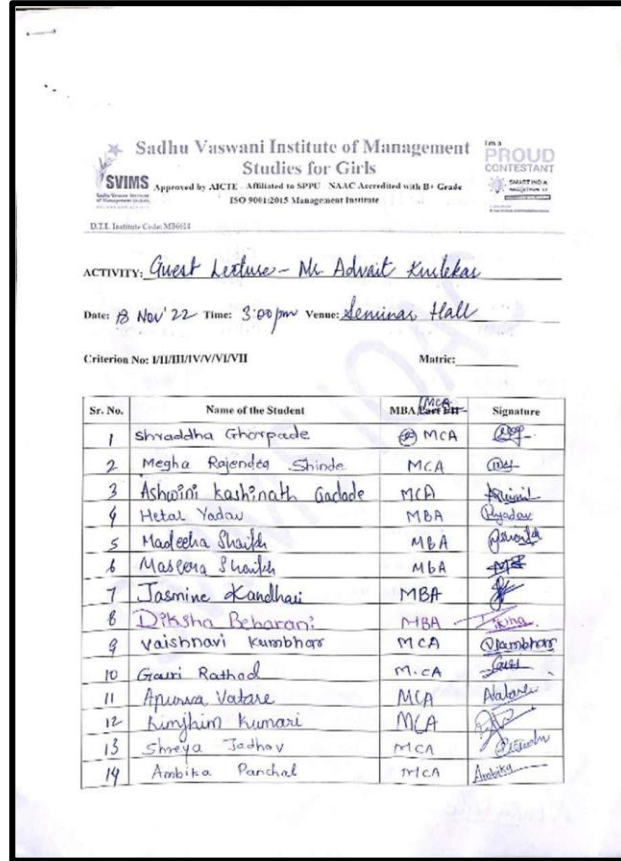 Sadhu Vaswani Institute of Management
Studies for Girls
SVIMS
Approved by AICTE Affiliated to SPPU NAAC Accredited with B+ Grade
ISO 9001:2015 Management Institute
I'm a
PROUD
CONTESTANT
SMART INDIA
D.T.E. Institute Code: MB6614
ACTIVITY: Guest Lecture - Mr Advait Kurlekar
Date: 18 Nov'22 Time: 3:00 pm Venue: Seminar Hall
Criterion No: I/II/III/IV/V/VI/VII Matric:
Sr. No. Name of the Student MBA /MCA Signature
1 Shraddha Ghorpade MCA
2 Megha Rajendra Shinde MCA
3 Ashwini Kashinath Gadade MCA
4 Hetal Yadav MBA Hyadav
5 Madeeha Shaikh MBA
6 Maseera Shaikh MBA
7 Jasmine Kandhari MBA
8 Diksha Beharani MBA
9 Vaishnavi Kumbhar MCA VKumbhar
10 Gauri Rathod M.CA Gauri
11 Apurva Vatare MCA AVatare
12 Rimjhim Kumari MCA
13 Shreya Jadhav MCA
14 Ambika Panchal MCA Ambika